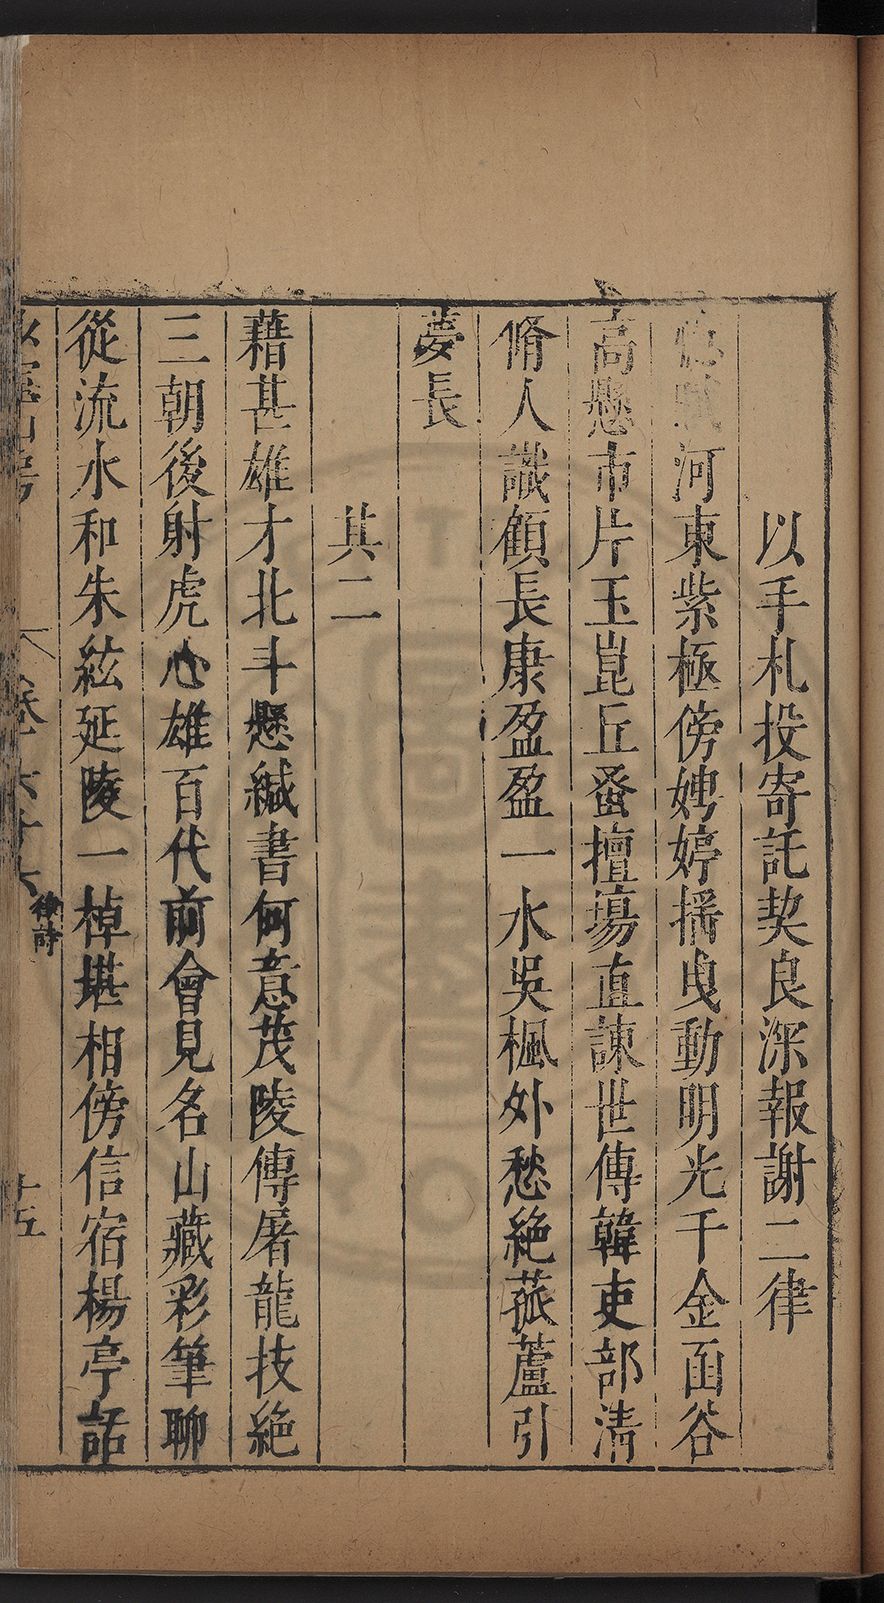 以手札投寄託契良深報謝二律
賦河東紫極傍娉婷搖曳動明光千金函谷
高懸市片玉崑丘蚤擅塲直諫世傳韓吏部清
脩人識顧長康盈盈一水吳楓外愁絶菰蘆引
夢長
其二
藉甚雄才北斗懸緘書何意茂陵傳屠龍技絶
三朝後射虎心雄百代前會見名山藏彩筆聊
從流水和朱絃延陵一棹堪相傍信宿楊亭話
少室山房 卷六十六 律詩 十五